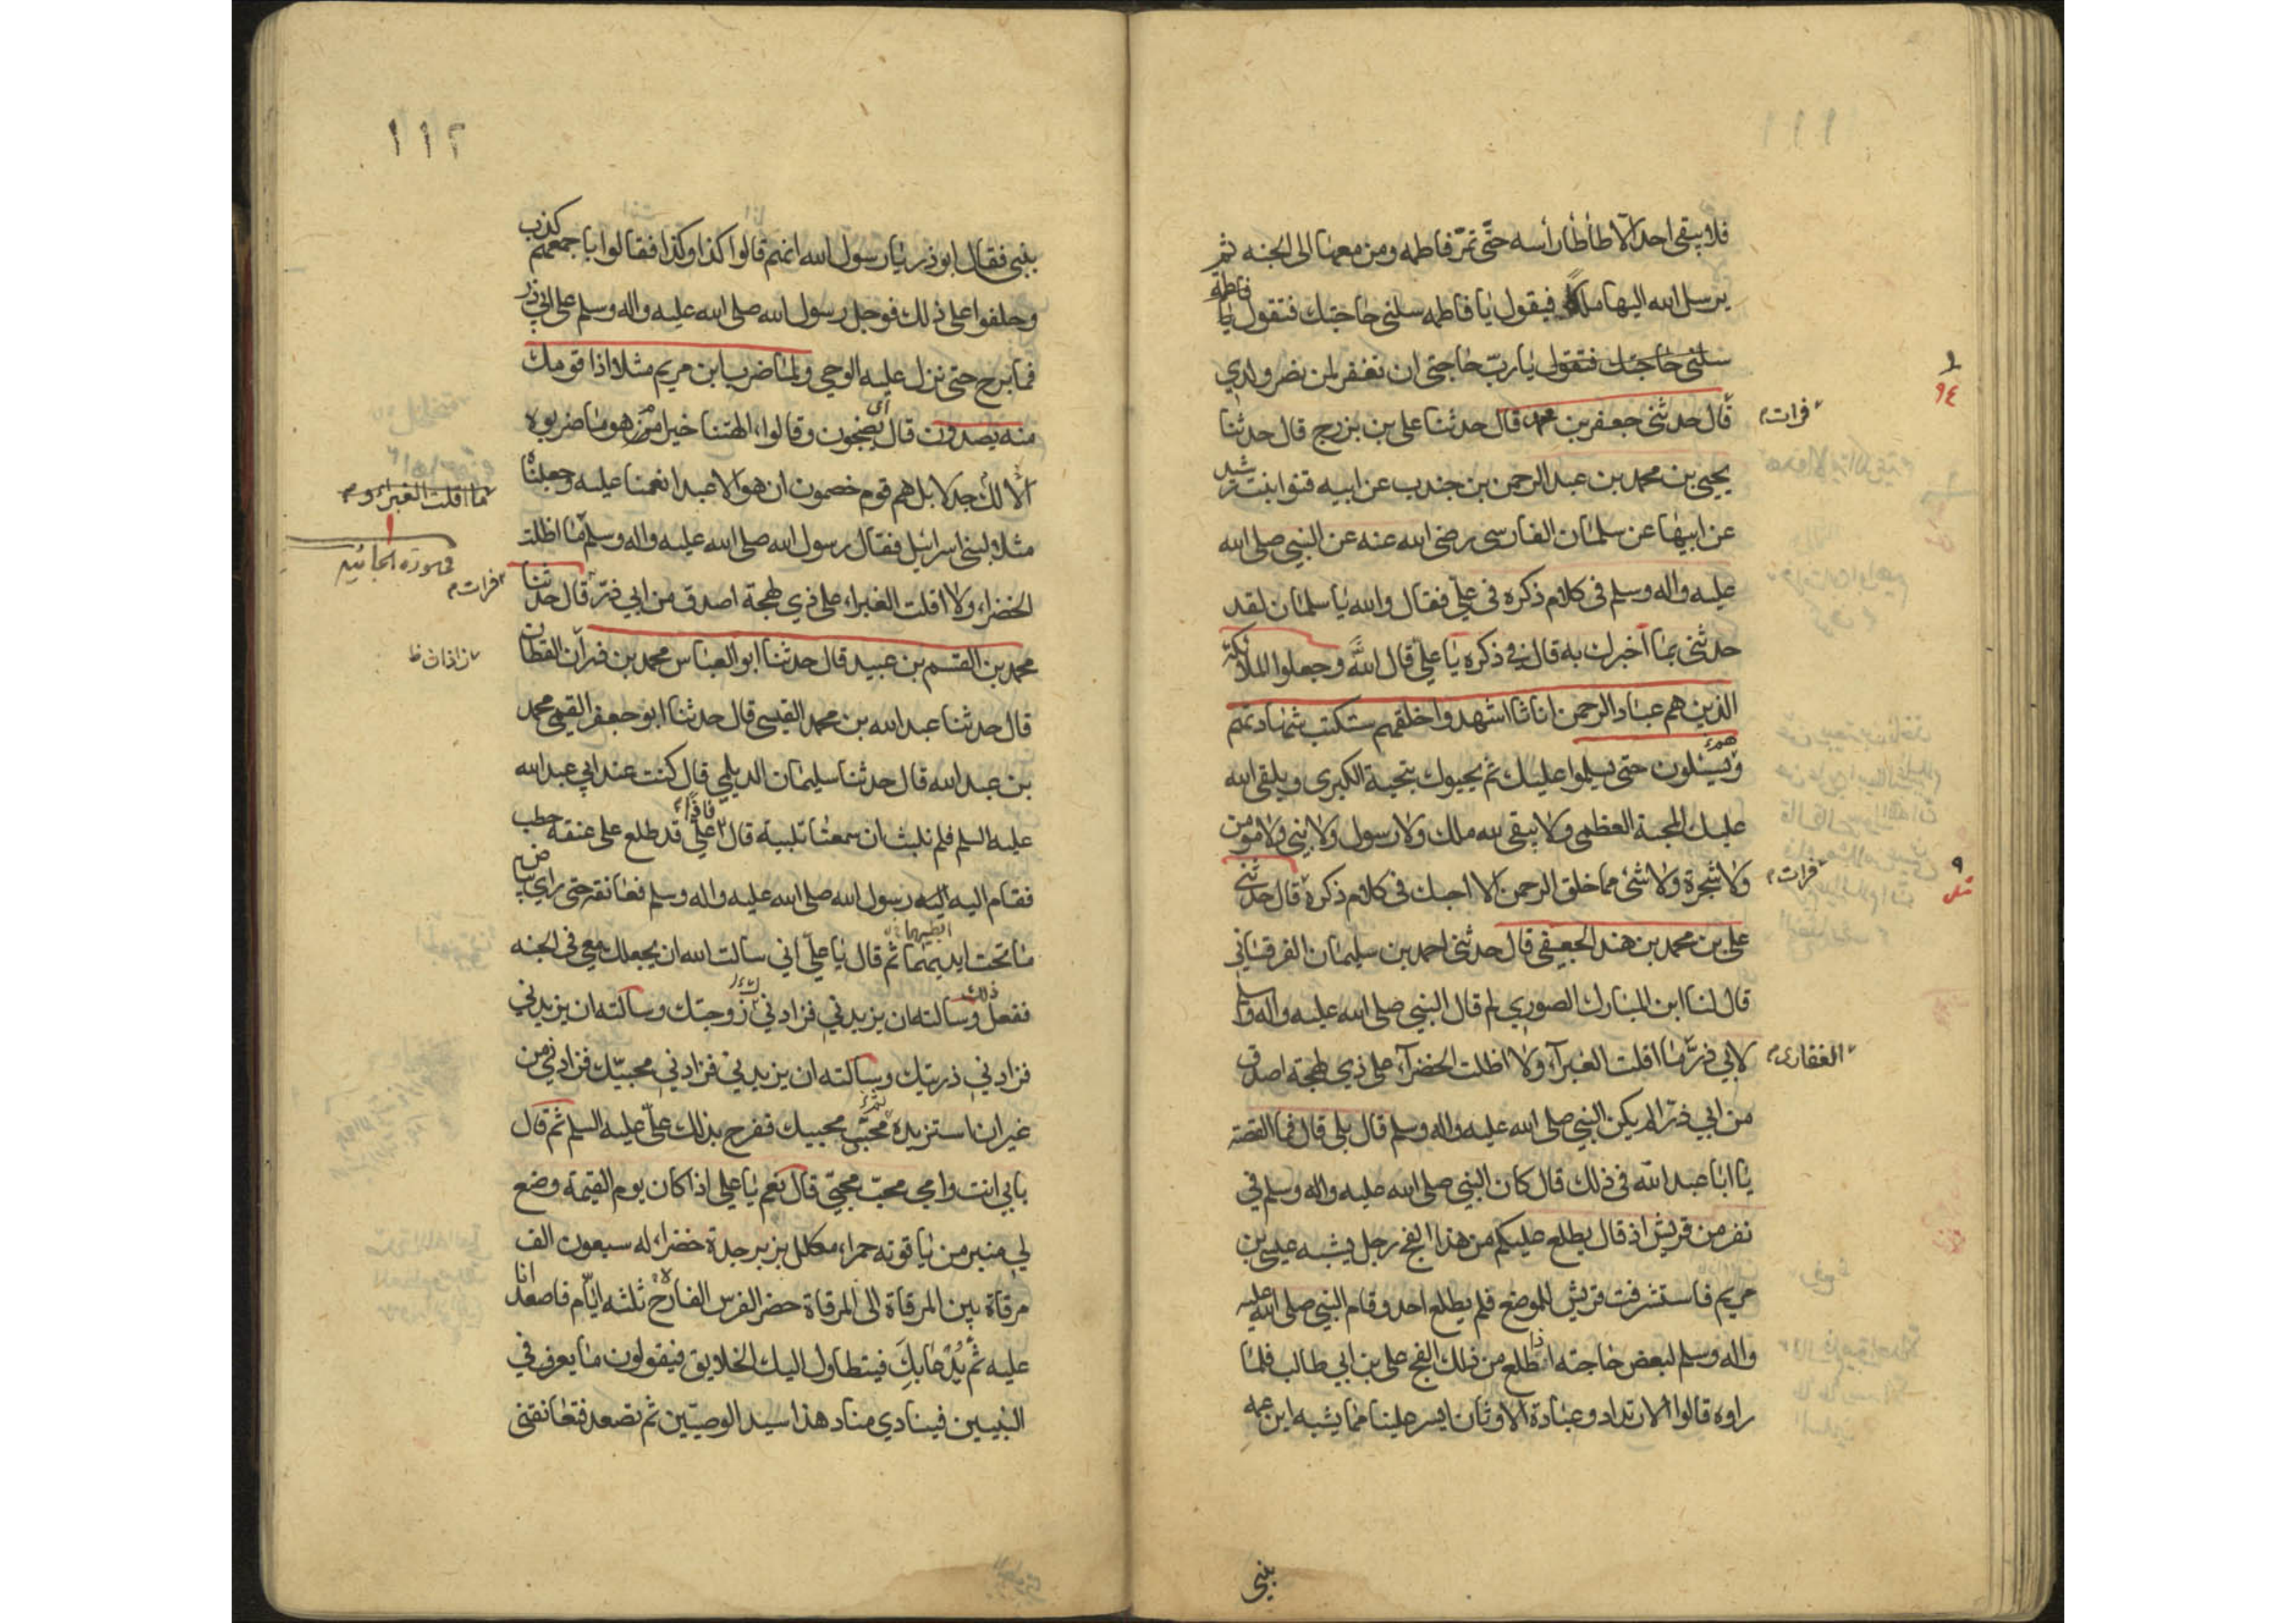 فلا يبقى احد الّا طأطأ رأسه حتّى تمرّ فاطمه ومن معها الى الجنه ثم
يرسل الله اليها ملكاً فيقول يا فاطمه سلنى حاجتك فتقول يا فاطمة
سلنى حاجتك فتقول يا ربّ حاجتى ان تغفر لمن نصر ولدي
قال حدثنى جعفر بن محمد قال حدثنا على بن بزرج قال حدثنا
فرات
يحيى بن محمد بن عبد الرحمن بن جندب عن ابيه قنوا بنت رشيد
عن ابيها عن سلمان الفارسى رضى الله عنه عن النبي صلى الله
عليه واله وسلم فى كلام ذكره فى علىّ فقال والله يا سلمان لقد
حدثنى بما اخبرك به قال في ذكره يا على قال الله وجعلوا الملائكة
الذين هم عباد الرحمن اناثا اشهدوا خلقهم ستكتب شهادتهم
ويسئلون حتى يسلموا عليك ثم يحيوك بتحية الكبرى ويلقى الله
عليك المحبة العظمى ولا يبقى لله ملك ولا رسول ولا نبي ولا مؤمن
ولا شجرة ولا شئ مما خلق الرحمن الا احبك فى كلام ذكره قال حدثنى
فرات
على بن محمد بن هند الجعفى قال حدثنى احمد بن سليمان الفرقسانى
قال لنا ابن المبارك الصوري لم قال النبي صلى الله عليه واله وسلم
لابي ذرّ ما اقلت الغبرآء ولا اظلت الخضرآء على ذي لهجة اصدق
الغفارى
من ابي ذرّ الم يكن النبي صلى الله عليه واله وسلم قال بلى قال فما القصة
يا ابا عبد الله فى ذلك قال كان النبي صلى الله عليه واله وسلم في
نفر من قريش اذ قال يطلع عليكم من هذا الفج رجل يشبه عيسى بن
مريم فاستشرفت قريش للموضع فلم يطلع احد وقام النبي صلى الله عليه
واله وسلم لبعض حاجته اذا طلع من ذلك الفج على بن ابي طالب فلما
راوه قالوا الارتداد وعبادة الاوثان ايسر علينا مما يشبه ابن عمه
بنبي
١١٢
بنبي فقال ابو ذر يا رسول الله انهم قالوا كذا وكذا فقالوا باجمعهم كذب
وحلفوا على ذلك فوجل رسول الله صلى الله عليه واله وسلم على ابي ذر
فما برح حتى نزل عليه الوحي ولما ضرب ابن مريم مثلا اذا قومك
منه يصدون قال اى يضجون وقالوا ءالهتنا خير ام هو ما ضربوه
الّا لك جدلا بل هم قوم خصمون ان هو الا عبد انعمنا عليه وجعلناه
ما اقلت الغبراء و
مثلا لبنى اسرائيل فقال رسول الله صلى الله عليه واله وسلم ما اظلت
الخضراء ولا اقلت الغبراء على ذي لهجة اصدق من ابي ذرّ قال حدثنا
فرات
محمد بن القسم بن عبيد قال حدثنا ابو العباس محمد بن فران القطان
زاذان ظ
قال حدثنا عبد الله بن محمد القيسى قال حدثنا ابو جعفر القمي محمد
بن عبد الله قال حدثنا سليمان الديلمي قال كنت عند ابي عبد الله
عليه السلم فلم نلبث ان سمعنا تلبية قال فاذا علي قد طلع على عنقه حطب
فقام اليه اليه رسول الله صلى الله عليه واله وسلم فعانقه حتى راي بياض
ما تحت ايديهما ثم قال يا علىّ انى سالت الله ان يجعلك معي فى الجنه
ابطيهما
ففعل ذلك وسالته ان يزيدني فزادني زوجتك وسالته ان يزيدني
فزادني ذريتك وسالته ان يزيدنى فزادنى محبيّك فزادنى من
غير ان استزيده محبّى محبيك ففرح بذلك علىّ عليه السلم ثم قال
بابي انت وامي محبّ محبّي قال نعم يا على اذا كان يوم القيمة وضع
لي منبر من ياقوته حمراء مكلل بزبرجدة خضراء له سبعون الف
مرقاة بين المرقاة الى المرقاة حضر الفرس الفارح ثلثه ايّام فاصعد انا
عليه ثم يُدْعا بك فيتطاول اليك الخلايق فيقولون ما يعرف في
النبيين فينادي مناد هذا سيد الوصيّين ثم تصعد فتعانقنى